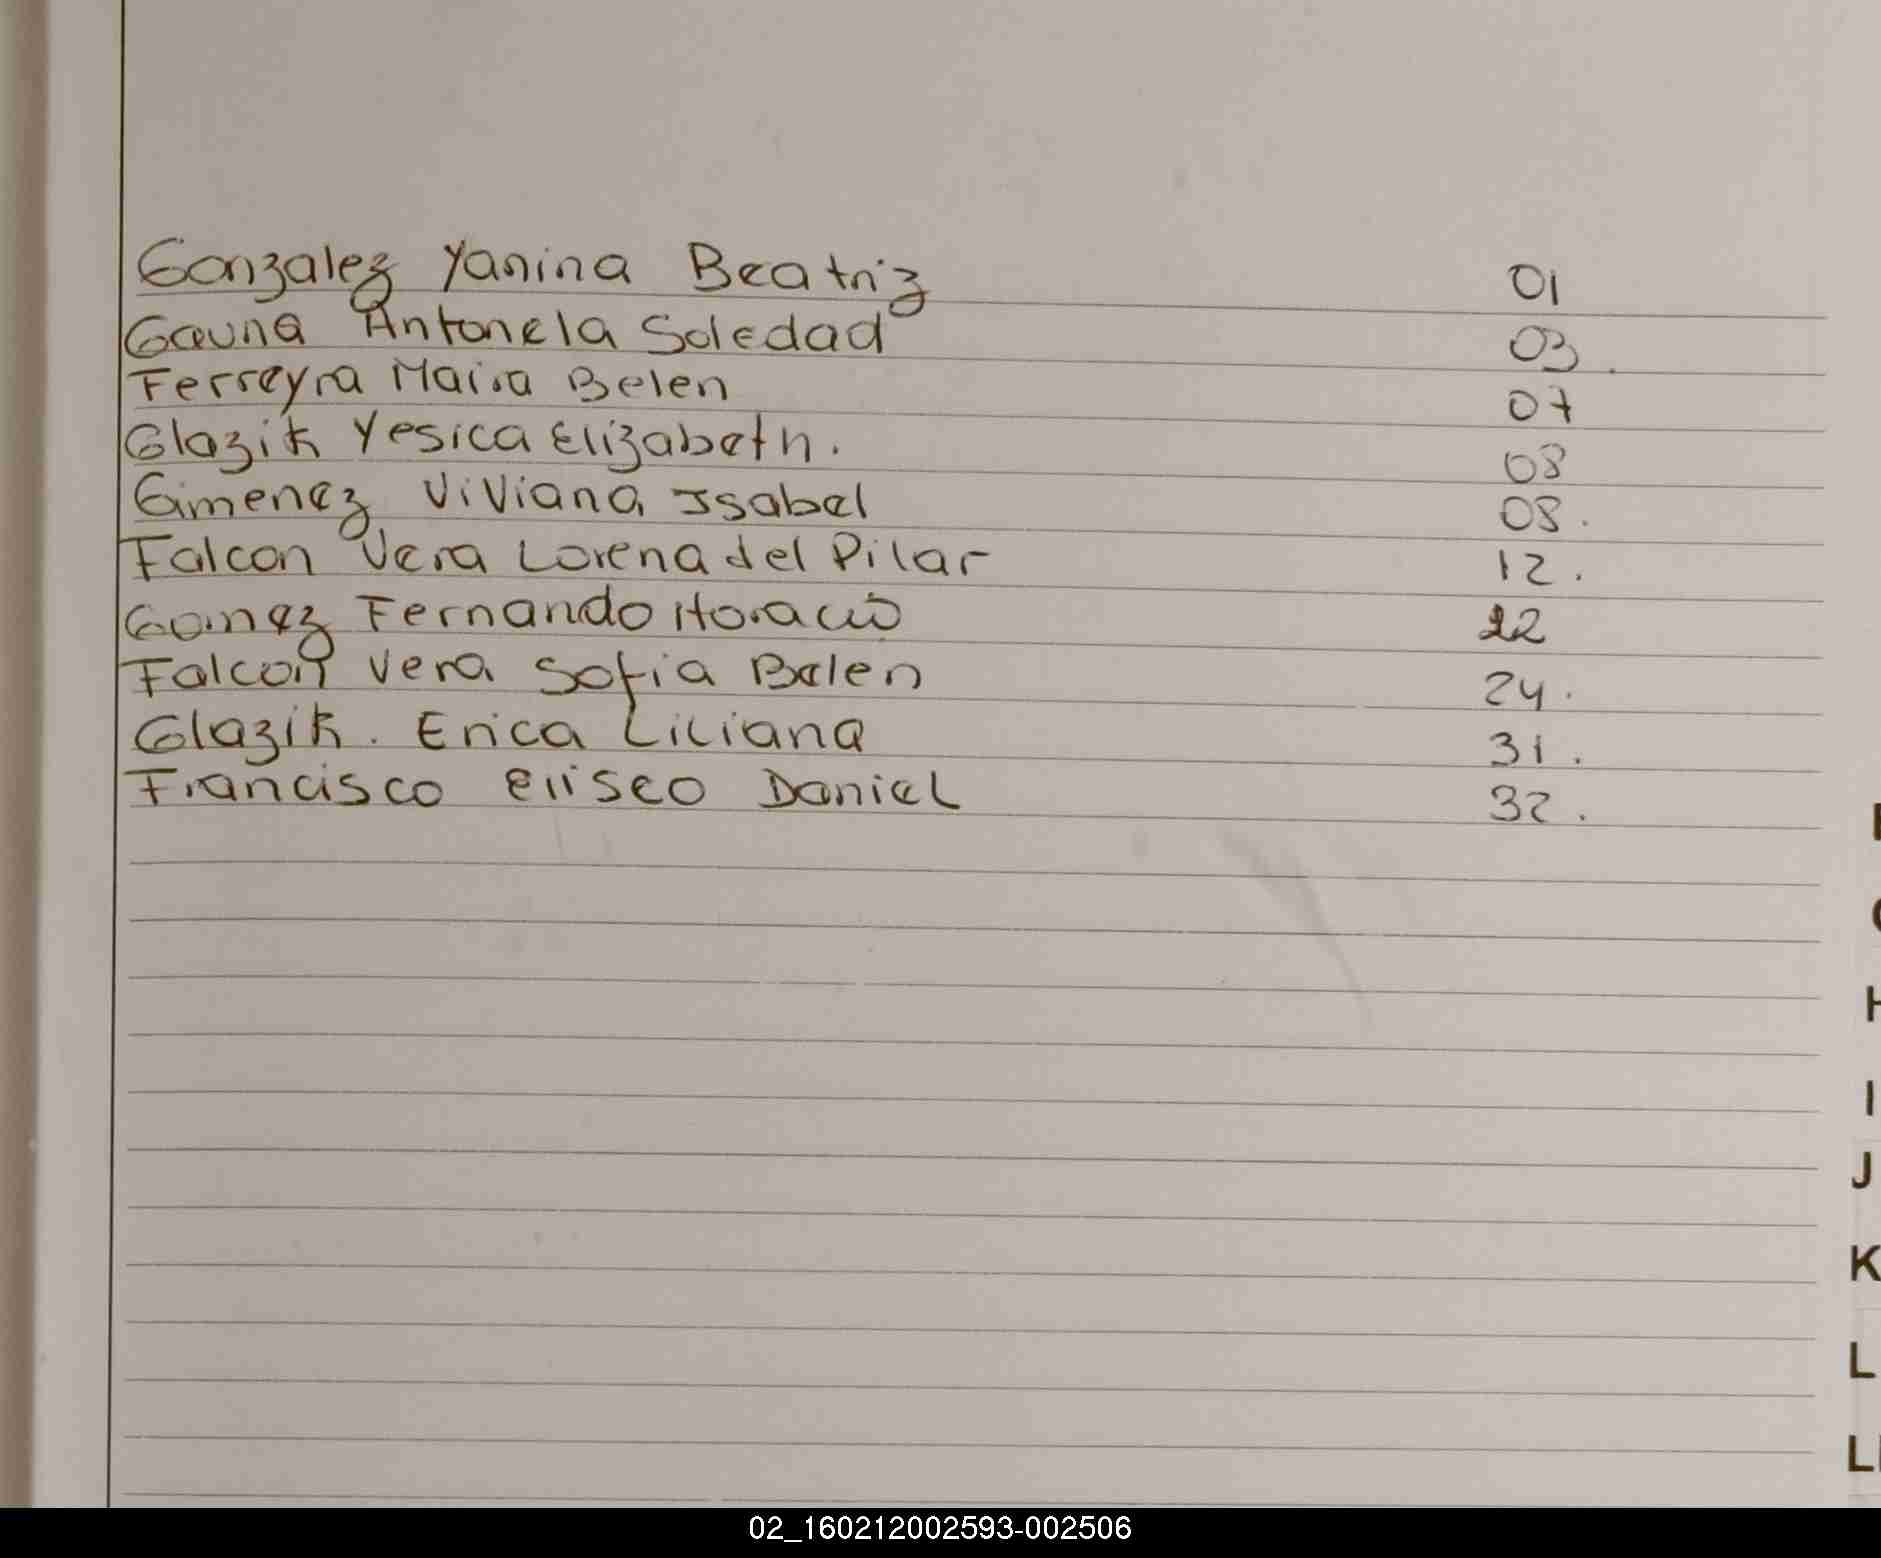 Gonzalez Yanina Beatriz 01
Gauna Antonela Soledad 03.
Ferreyra Maira Belen 07
Glazik Yesica Elizabeth. 08
Gimenez Viviana Isabel 08.
Falcon Vera Lorena del Pilar 12.
Gomez Fernando Horacio 22
Falcon Vera Sofia Belen 24.
Glazik. Erica Liliana 31.
Francisco Eliseo Daniel 32.
H
I
J
K
L
02_160212002593-002506